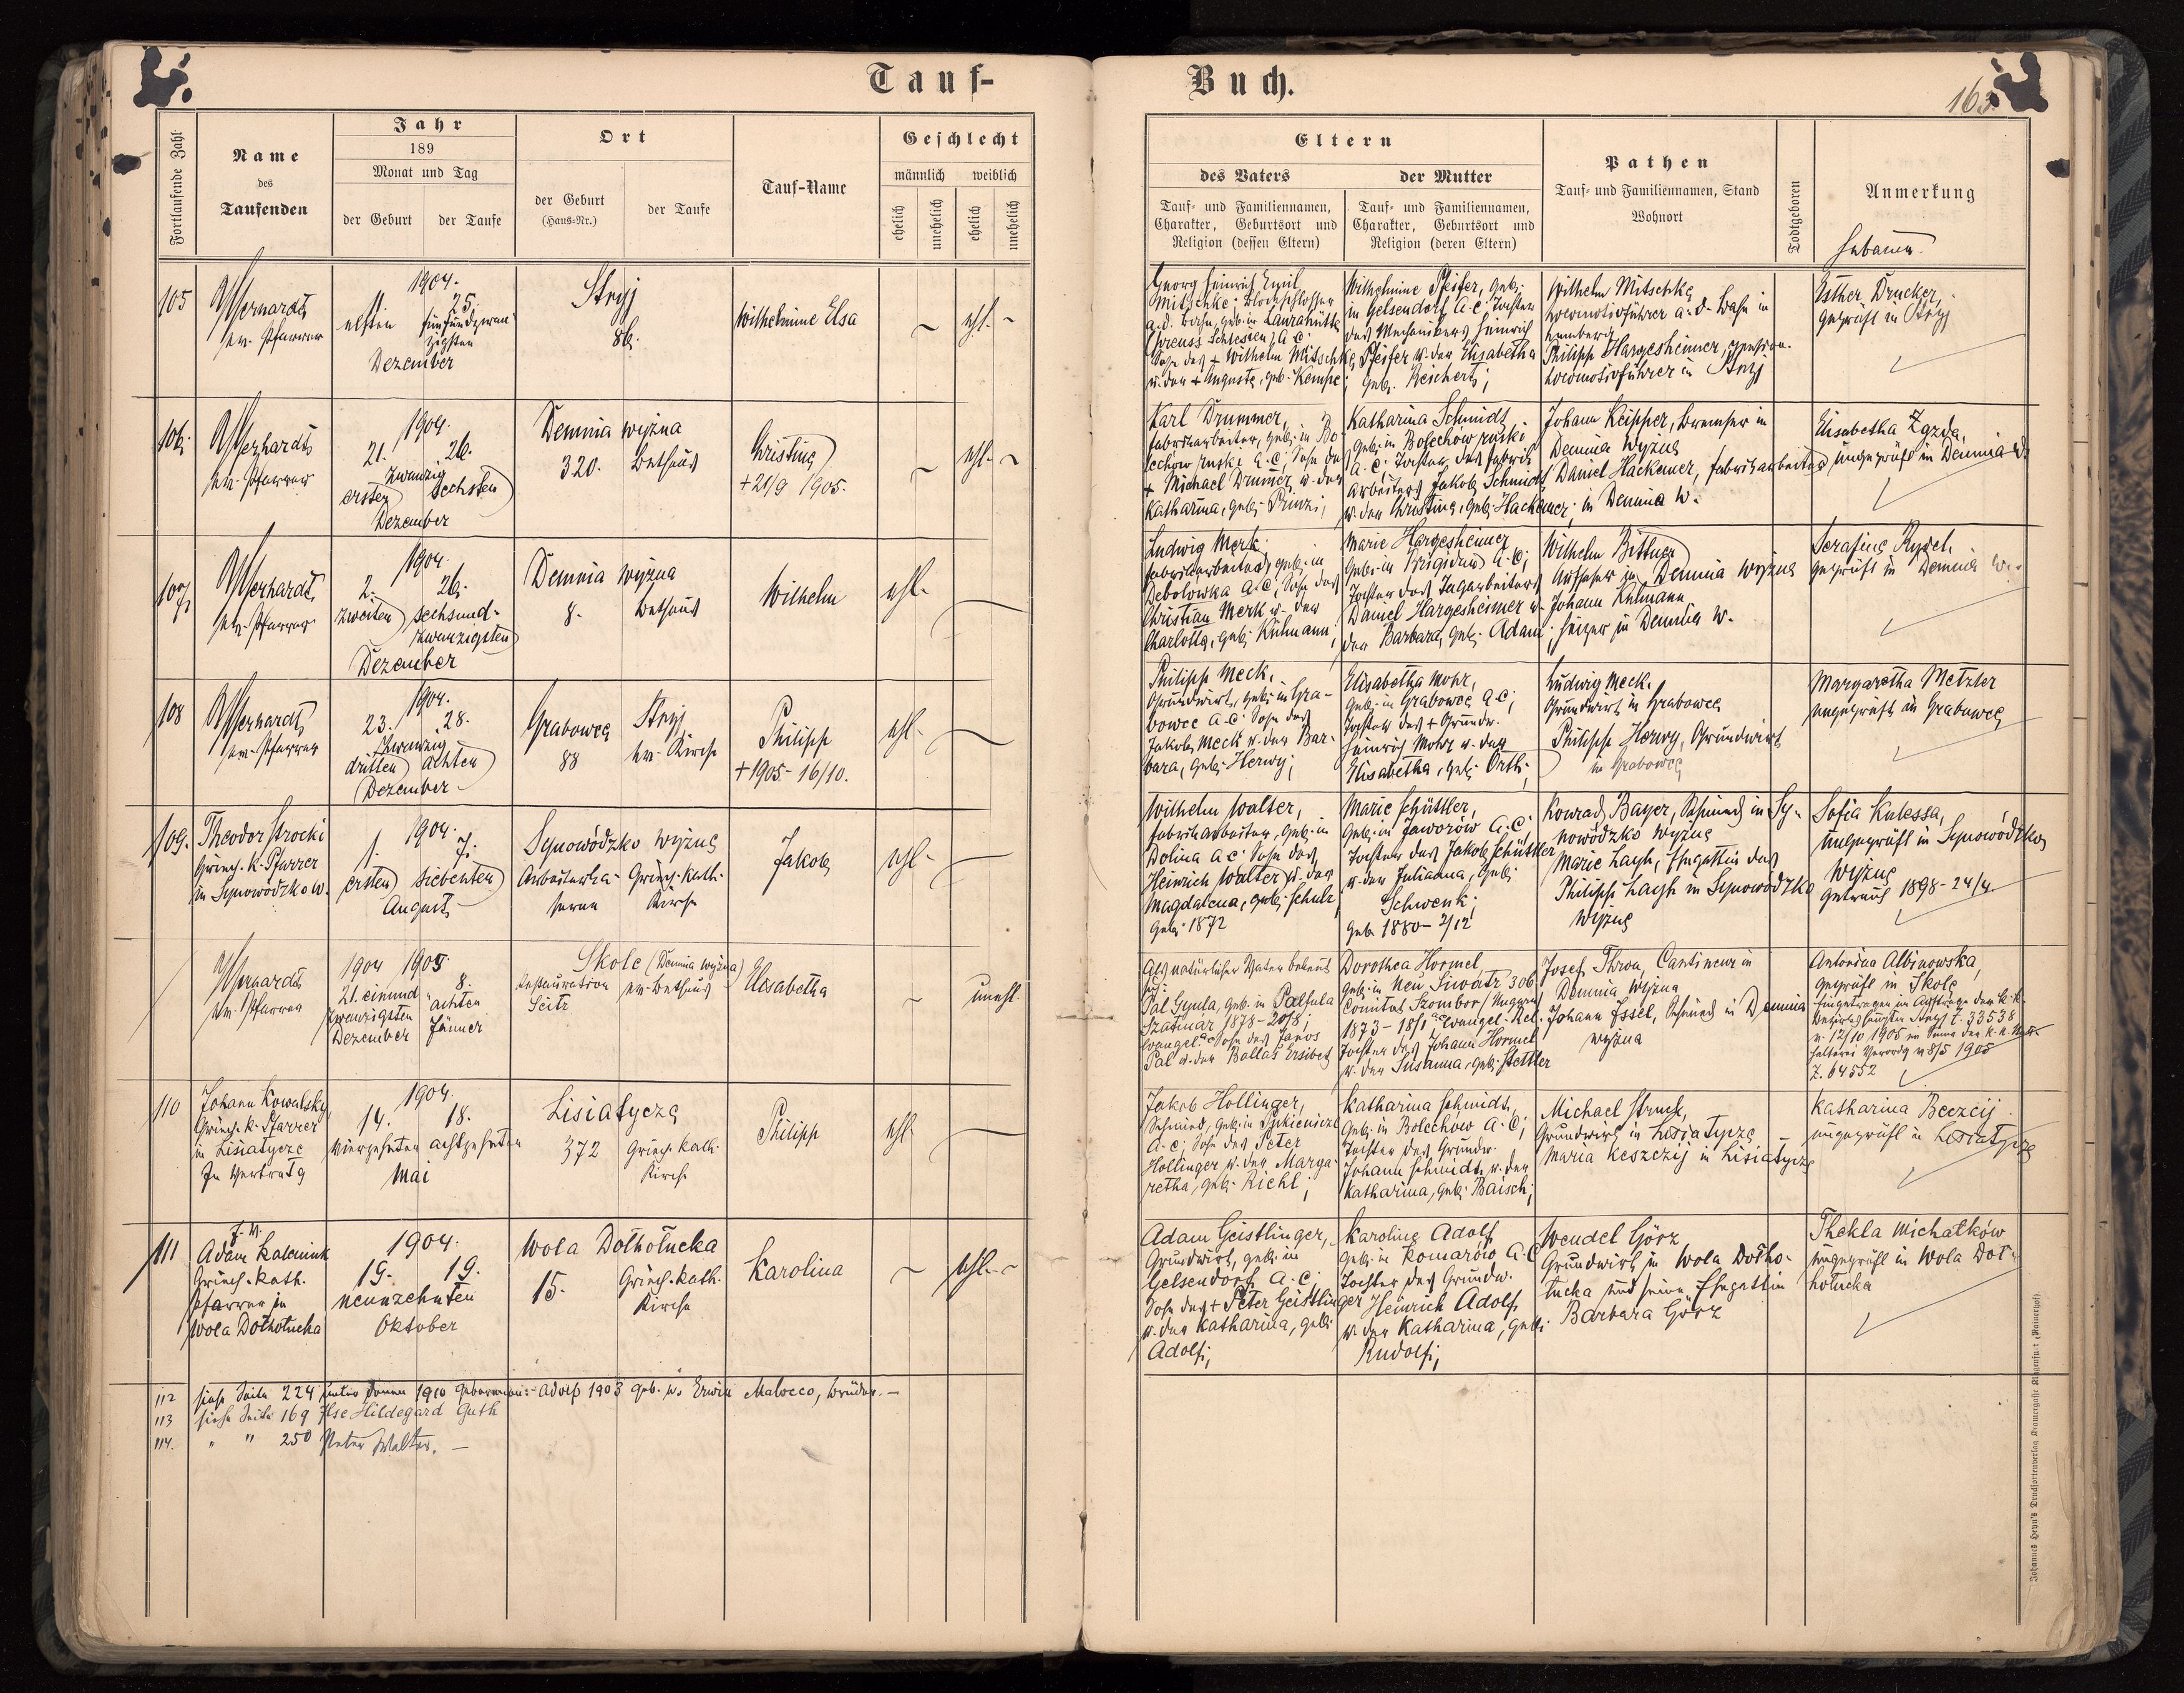 Tauf-
Buch.
163
Fortlaufende Zahl
Name
des
Taufenden
Jahr
189
Monat und Tag
der Geburt
der Taufe
Ort
der Geburt
(Haus-Nr.)
der Taufe
Tauf-Name
Geschlecht
männlich
weiblich
ehelich
unehelich
ehelich
unehelich
Eltern
des Vaters
Tauf- und Familiennamen,
Charakter, Geburtsort und
Religion (dessen Eltern)
der Mutter
Tauf- und Familiennamen,
Charakter, Geburtsort und
Religion (deren Eltern)
Pathen
Tauf- und Familiennamen, Stand
Wohnort
Todtgeboren
Anmerkung
Hebamme
105
ev. Pfarrer
1904.
11. 25.
elften fünfundzwan-
zigsten
Dezember
Stryj
86.
Wilhelmine Elsa
ehl.
Georg Heinrich Emil
Mitschke, Blockschlosser
a. d. Bahn, geb. in Laurahütte
(preuss. Schlesien) A.C.
Sohn des + Wilhelm Mitschke
u. der + Auguste, geb. Kempe;
Wilhelmine Pfeifer, geb.
in Gelsendorf A.C. Tochter
des Mechanikers Heinrich
Pfeifer u. der Elisabetha
geb. Reichert;
Wilhelm Mitschke
Locomotivführer a. d. Bahn in
Lemberg
Philipp Hargesheimer, pension.
Locomotivführer in Stryj
Esther Drucker,
geprüft in Stryj
106.
ev. Pfarrer
1904.
21. 26.
zwanzig
ersten sechsten
Dezember
Demnia wyżna
320. Bethaus
Christine
+ 21/9 1905.
ehl.
Karl Drummer,
Fabriksarbeiter, geb. in Bo-
lechow ruski A.C., Sohn des
+ Michael Drumer u. der
Katharina, geb. Prinz;
Katharina Schmidt
geb. in Bolechow ruski
A.C.; Tochter des Fabriks-
arbeiters Jakob Schmidt
u. der Christine, geb. Hackemer;
Johann Keipper, Bremser in
Demnia wyżne
Daniel Hackemer, Fabriksarbeiter
in Demnia W.
Elisabetha Zgzda,
ungeprüft in Demnia W.
107
ev. Pfarrer
1904.
2. 26.
zweiten sechsund-
zwanzigsten
Dezember
Demnia wyżna
8. Bethaus
Wilhelm
ehl.
Ludwig Merk,
Fabriksarbeiter, geb. in
Debolowka A.C., Sohn des
Christian Merk u. der
Charlotte, geb. Kühmann;
Marie Hargesheimer
geb. in Brigidau A.C.;
Tochter des Sägearbeiters
Daniel Hargesheimer u.
der Barbara, geb. Adam;
Wilhelm Bittner
Aufseher in Demnia wyżne
Johann Kühmann
Heizer in Demnia W.
Serafine Rysch
geprüft in Demnia W.
108
ev. Pfarrer
1904.
23. 28.
zwanzig
dritten achten
Dezember
Grabowce Stryj
88 ev. Kirche
Philipp
+ 1905 - 16/10.
ehl.
Philipp Meck,
Grundwirt, geb. in Gra-
bowce A.C. Sohn des
Jakob Meck u. der Bar-
bara, geb. Herwy;
Elisabetha Mohr,
geb. in Grabowce A.C.;
Tochter des + Grundw.
Heinrich Mohr u. der
Elisabetha, geb. Orth;
Ludwig Meck,
Grundwirt in Grabowce
Philipp Herwy, Grundwirt
in Grabowce
Margaretha Metzler
ungeprüft in Grabowce
109.
Theodor Strocki
Griech. k. Pfarrer
in Synowódzko W.
1904.
1. 7.
ersten siebenten
August
Synowódzko wyżne
Arbeiterka- Griech. kath.
serne Kirche
Jakob
ehl.
Wilhelm Walter,
Fabriksarbeiter, geb. in
Dolina A.C. Sohn des
Heinrich Walter u. der
Magdalena, geb. Schulz
geb. 1872
Marie Schüttler,
geb. in Jaworów A.C.
Tochter des Jakob Schüttler
u. der Julianna, geb.
Schwenk;
geb. 1880 - 2/12
Konrad Bayer, Schmied in Sy-
nowódzko wyżne
Marie Layh, Ehegattin des
Philipp Layh in Synowódzko
wyżne
Sofia Kulessa,
ungeprüft in Synowódzko
wyżne
Getraut 1898 - 24/4
ev. Pfarrer
1904 1905
21. einund- 8.
zwanzigsten achten
Dezember Jänner
Skole (Demnia wyżna)
Restauration ev. Bethaus
Seitz
Elisabetha
unehl.
Als natürlicher Vater bekennt
sich:
Pál Gyula, geb. in Pálfula
Szatmár 1878 - 20/8;
evangel. Sohn des Janos
Pál u. der Ballas Ersibet
Dorothea Hormel,
geb. in Neu Siwatz 306
Comitat Szombor, Ungarn
1873 - 18/1 evangel. Rel.
Tochter des Johann Hormel
u. der Susanna, geb. Stettler
Josef Thron, Cantineur in
Demnia wyżna
Johann Essel, Schmied in Demnia
wyżna
Antonina Albinowska,
geprüft in Skole
Eingetragen im Auftrage der k.k.
Bezirkshauptm. Stryj Z. 33538
v. 12/10 1905 im Sinne der k.k. Statt-
halterei Verordg v. 8/5 1905
Z. 64552
110
Johann Kowalsky
Griech. k. Pfarrer
in Lisiatycze
In Vertretg
1904.
14. 18.
vierzehnten achtzehnten
Mai
Lisiatycze
372 Griech. kath.
Kirche
Philipp
ehl.
Jakob Hollinger,
Schmied, geb. in
A.C.; Sohn des Peter
Hollinger u. der Marga-
retha, geb. Riehl;
Katharina Schmidt,
geb. in Bolechow A.C.;
Tochter des Grundw.
Johann Schmidt u. der
Katharina, geb. Baisch;
Michael Struck,
Grundwirt in Lisiatycze
Maria Keszczij in Lisiatycze
Katharina Beczcij
ungeprüft in Lisiatycze
111
J. W.
Adam Kalcinink
Griech. kath.
Pfarrer in
Wola Dołhołucka
1904.
19. 19.
neunzehnten
Oktober
Wola Dołhołucka
15. Griech. kath.
Kirche
Karolina
ehl.
Adam Geistlinger,
Grundwirt, geb. in
Gelsendorf A.C.;
Sohn des + Peter Geistlinger
u. der Katharina, geb.
Adolf;
Karoline Adolf
geb. in Komarów A.C.
Tochter des Grundw.
Heinrich Adolf
u. der Katharina, geb.
Rudolf;
Wendel Görz
Grundwirt in Wola Dołho-
łucka und seine Ehegattin
Barbara Görz
Thekla Michałków
ungeprüft in Wola Doł-
hołucka
112 siehe Seite 224 unter den 1910 Geborenen: Adolf 1903 geb. u. Erwin Malocco, Brüder. —
113 siehe Seite 169 Ilse Hildegard Guth
114. " " 250 Peter Walter. —
Johannes Heyn's Drucksortenverlag Kramergasse Klagenfurt (Rainerhof).